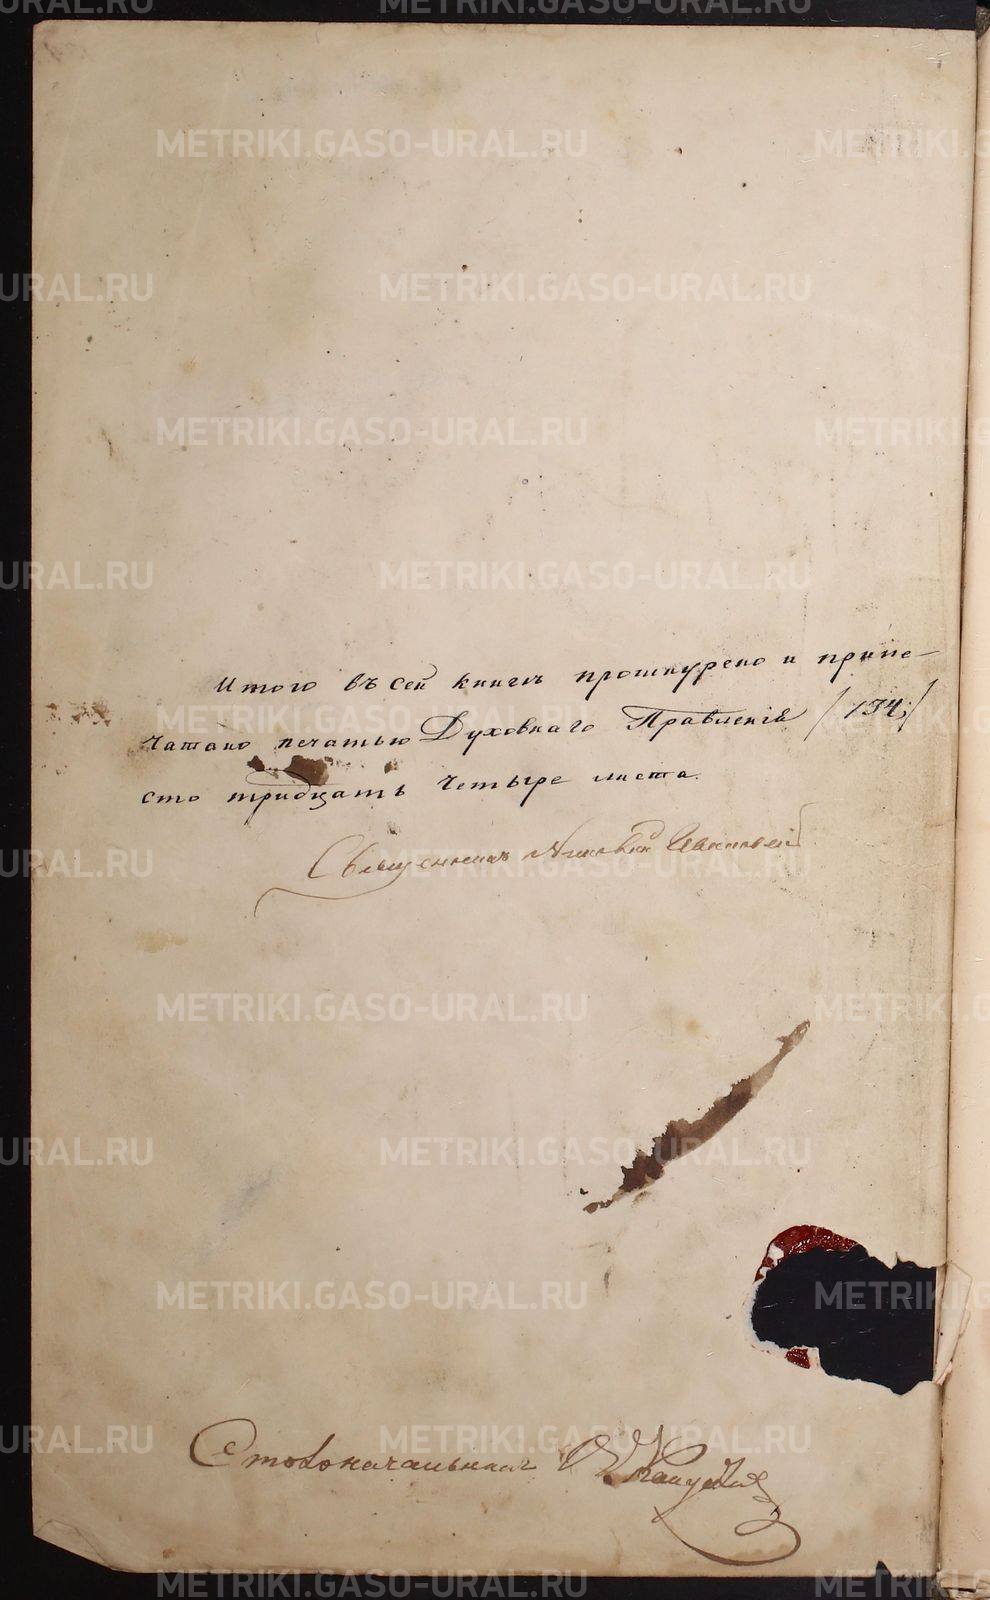 Итого въ сей книгѣ прошнурено и припе-
чатано печатью Духовнаго Правленія /134;/
сто тридцать четыре листа.
Священникъ
Столоначальникъ
METRIKI.GASO-URAL.RU